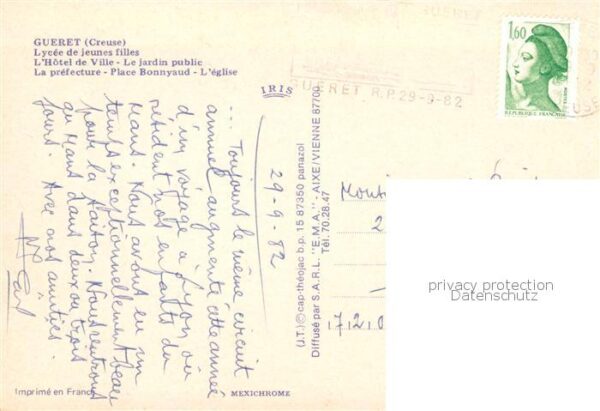 GUERET (Creuse)
Lycée de jeunes filles
L'Hôtel de Ville - Le jardin public
La préfecture - Place Bonnyaud - L'église
IRIS
GUERET R.P. 29-9-82
1,60
REPUBLIQUE FRANÇAISE
29-9-82
... Toujours le même circuit
annuel augmenté cette année
d'un voyage à Lyon où
résident nos enfants du
Mans. Nous avons eu un
temps exceptionnellement beau
pour la saison. Nous rentrons
au Mans dans deux ou trois
jours. Avec nos amitiés.
(J.T.) © cap-théojac b.p. 15 87350 panazol
Diffusé par S.A.R.L. "E.M.A." - AIXE/VIENNE 87700
Tél. 70.28.47
2
privacy protection
Datenschutz
Imprimé en France
MEXICHROME